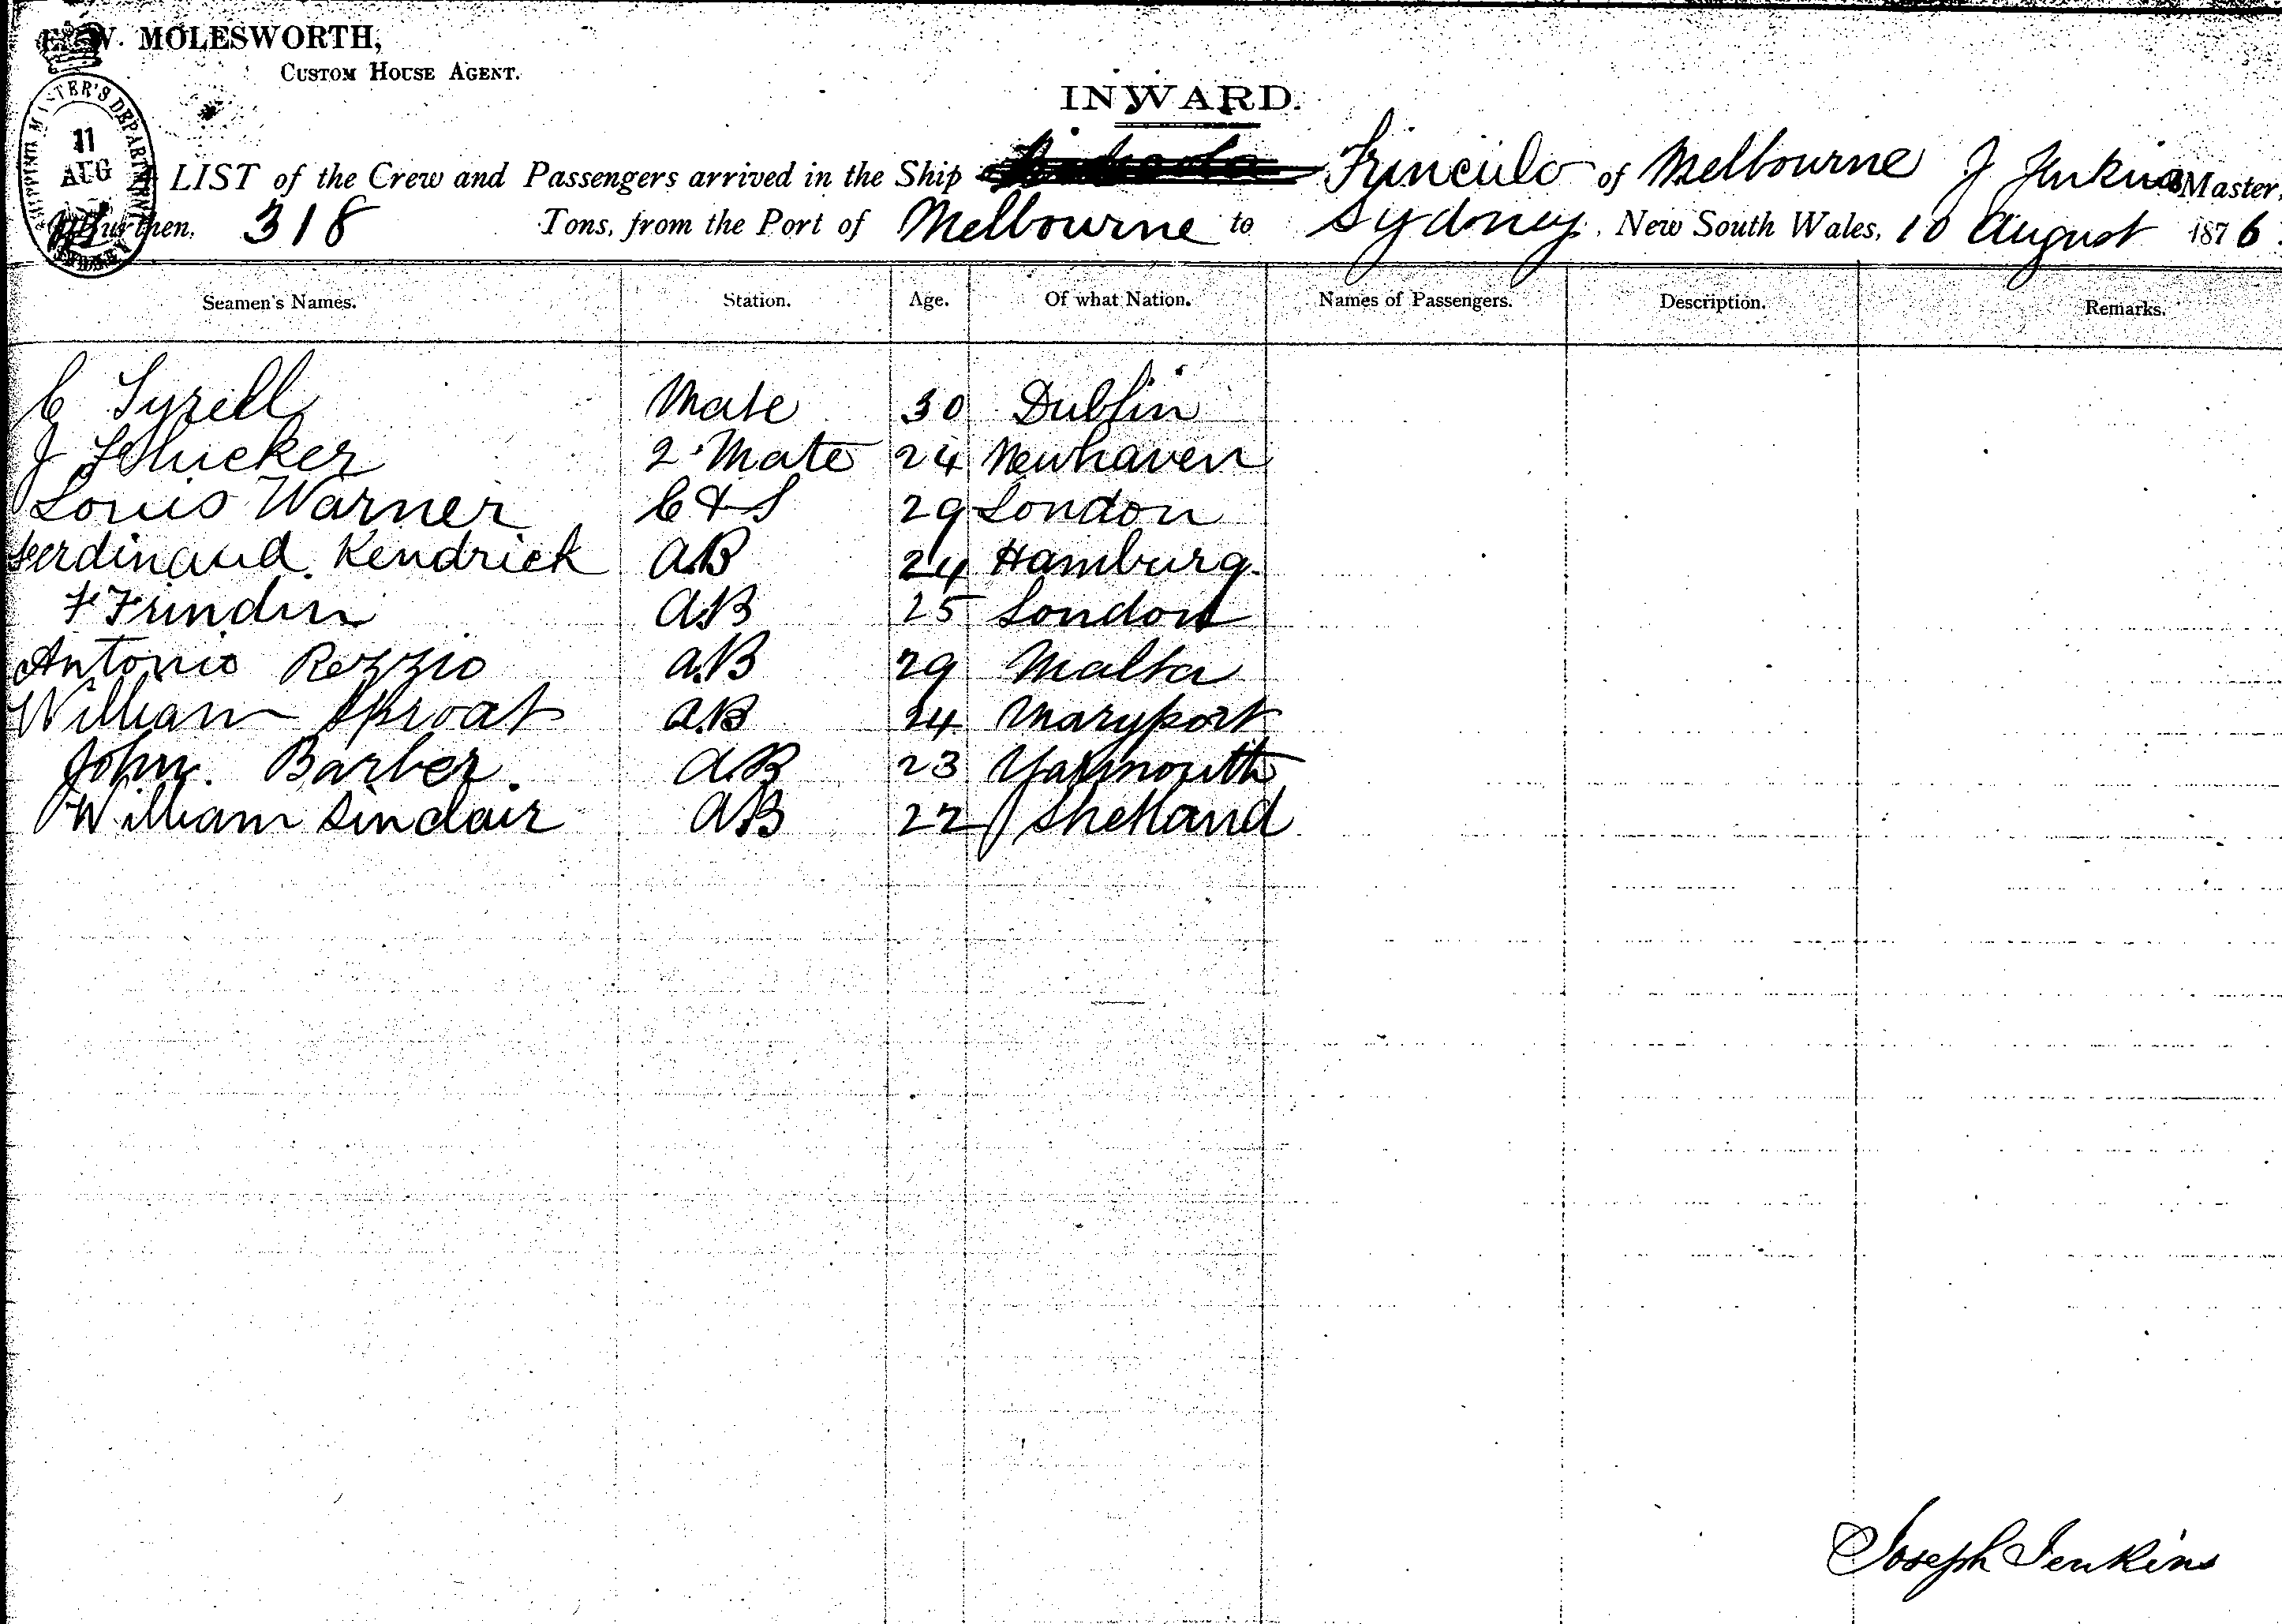 E. W. MOLESWORTH,
CUSTOM HOUSE AGENT.
SHIPPING MASTER'S DEPARTMENT
11
AUG
SYDNEY
INWARD.
A LIST of the Crew and Passengers arrived in the Ship Trinculo of Melbourne J Jenkins Master,
Burthen, 318 Tons, from the Port of Melbourne to Sydney, New South Wales, 10 August 1876.
Seamen's Names. Station. Age. Of what Nation. Names of Passengers. Description. Remarks.
C Tyrell Mate 30 Dublin
J 2 Mate 24 Newhaven
Louis Warner C & S 29 London
Ferdinand Kendrick AB 24 Hamburg
F AB 25 London
Antonio Rezzio AB 29 Malta
William Sproat AB 24 Maryport
John Barber AB 23 Yarmouth
William Sinclair AB 22 Shetland
Joseph Jenkins